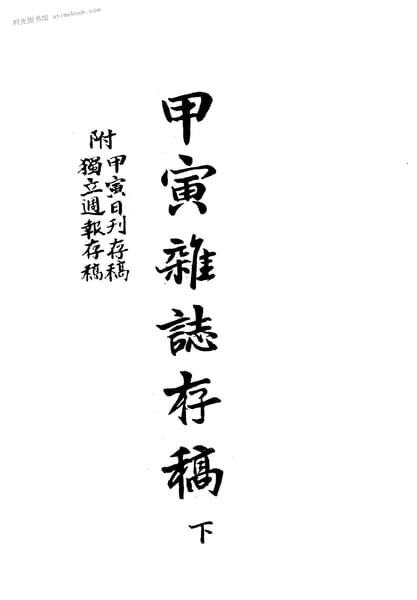 时光图书馆 atimebook.com
甲寅雜誌存稿 下
附 甲寅日刊存稿
獨立週報存稿